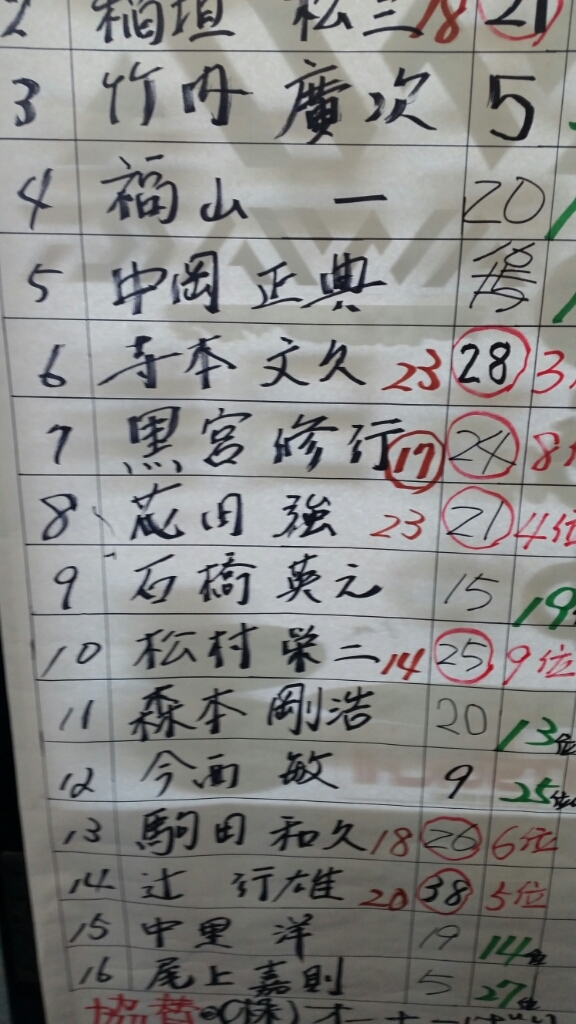 2 稲垣 松三 18 21
3 竹内 廣次 5
4 福山 一 20
5 中岡 正典
6 寺本 文久 23 28 3
7 黒宮 修行 17 24 8
8 花田 強 23 21 4位
9 石橋 英元 15 19
10 松村 栄二 14 25 9位
11 森本 剛浩 20 13位
12 今西 敏 9 25位
13 駒田 和久 18 26 6位
14 辻 行雄 20 38 5位
15 中里 洋 19 14位
16 尾上 嘉則 5 27位
協替